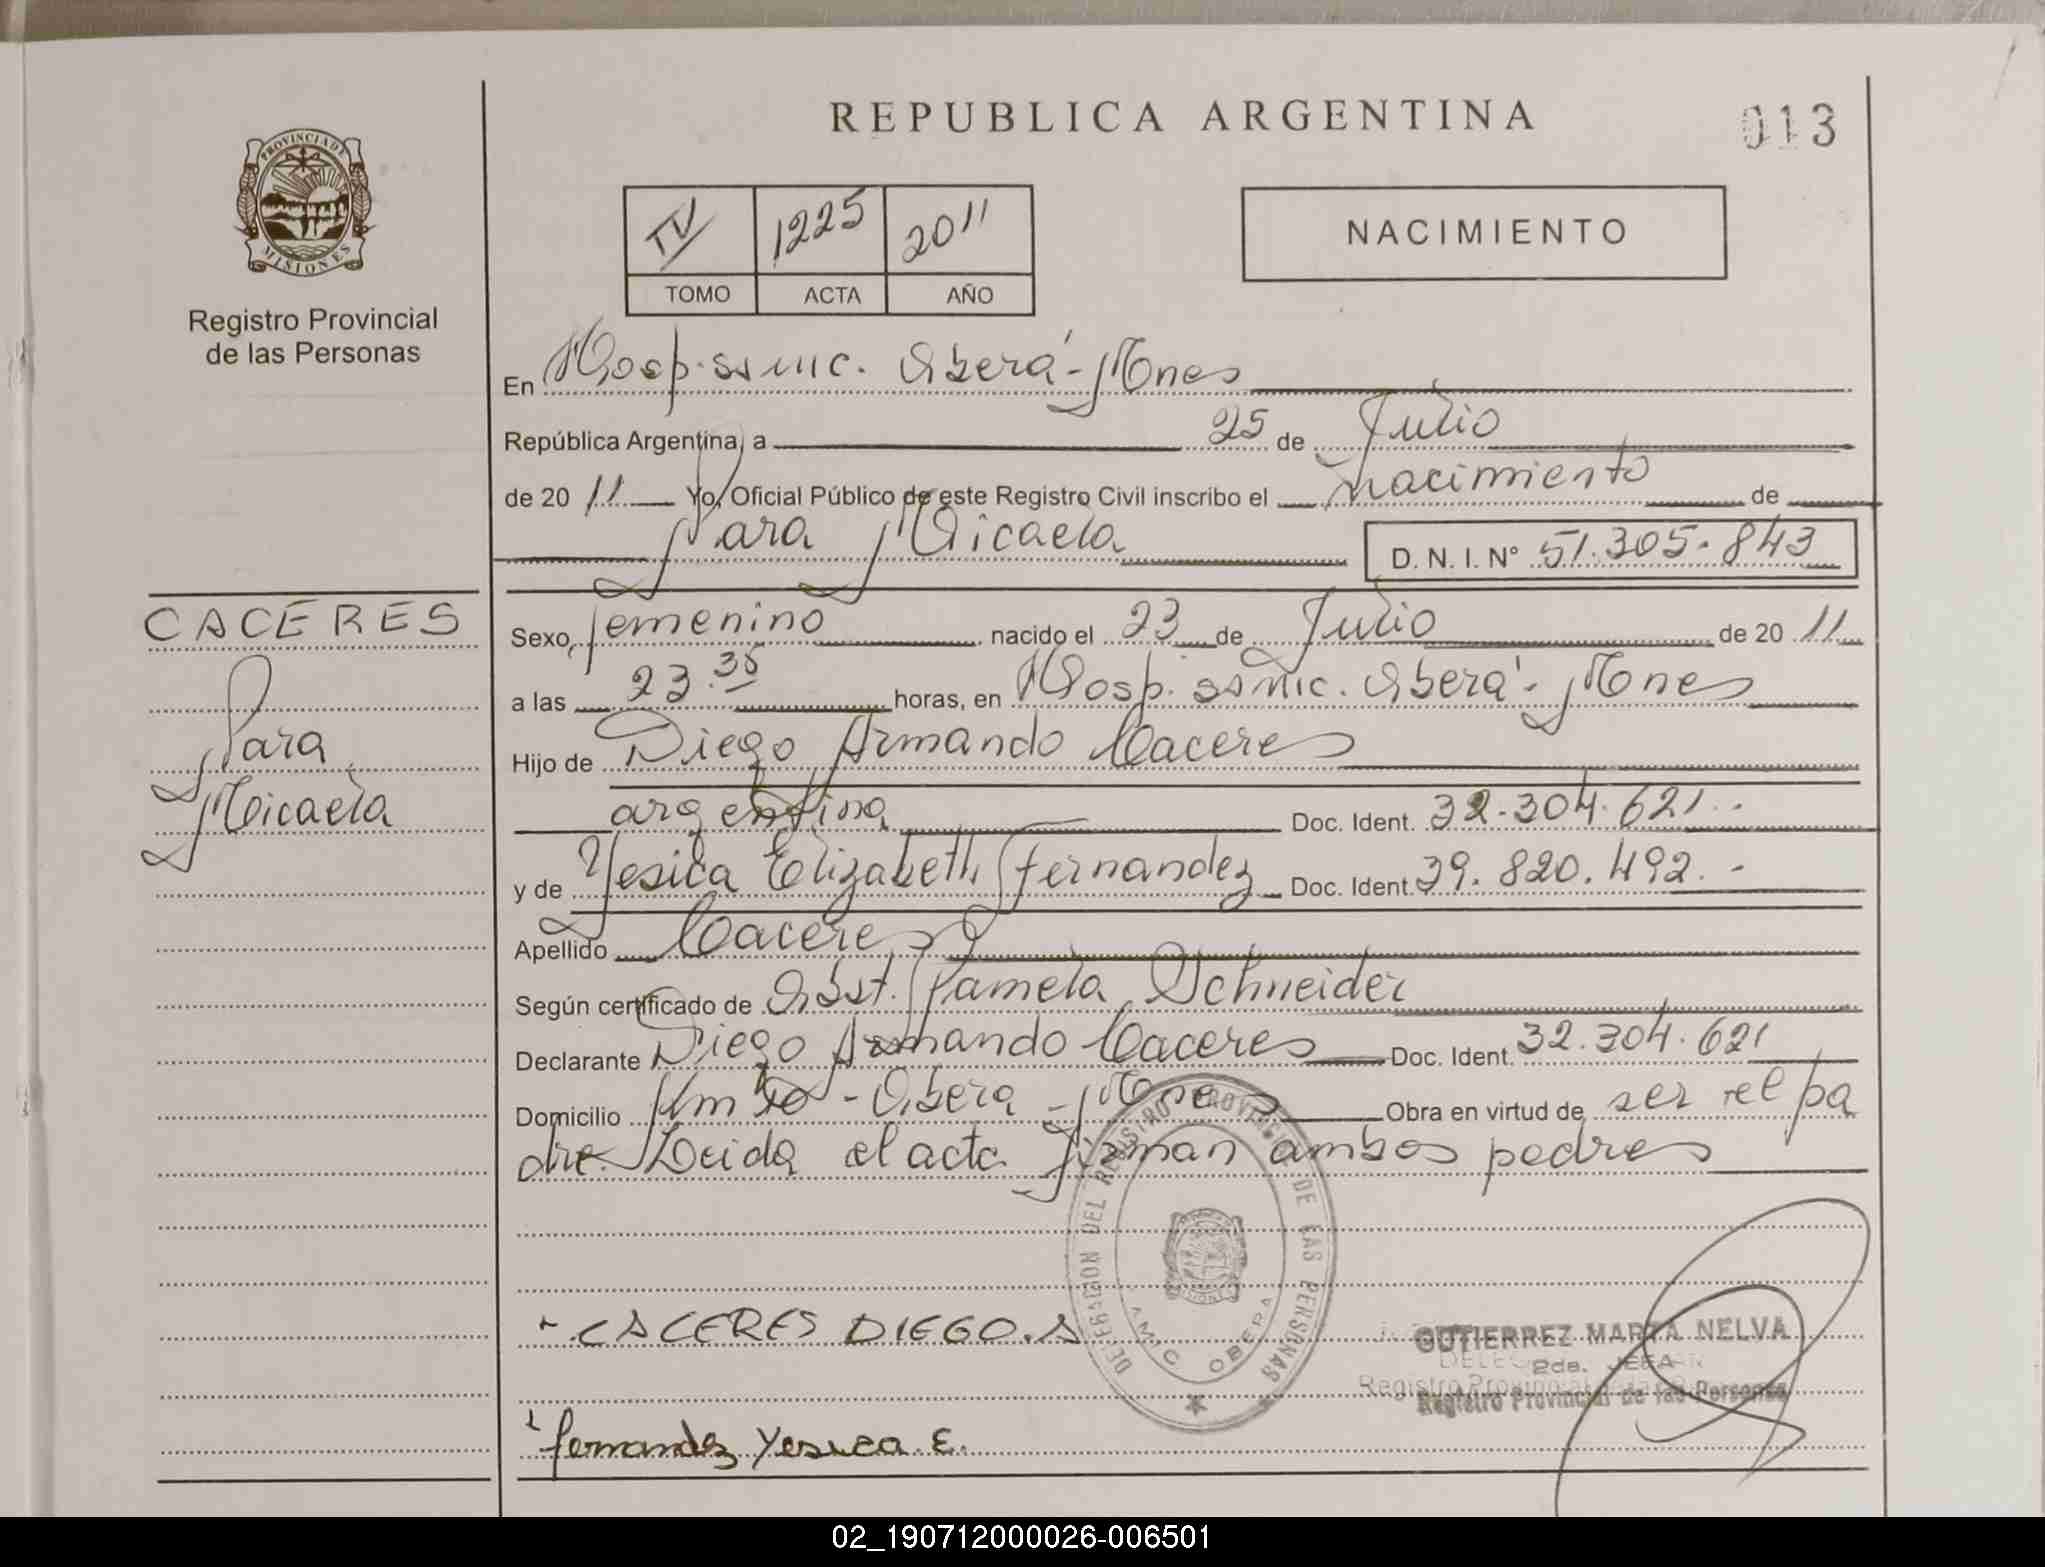 REPUBLICA ARGENTINA
013
PROVINCIA DE
MISIONES
Registro Provincial
de las Personas
TV 1225 2011
TOMO ACTA AÑO
NACIMIENTO
En Hosp. ss mic. Oberá - Mnes
República Argentina, a 25 de Julio
de 20 11 Yo, Oficial Público de este Registro Civil inscribo el nacimiento de
Sara Micaela D. N. I. N° 51.305.843
CACERES
Sara
Micaela
Sexo femenino nacido el 23 de Julio de 20 11
a las 23.35 horas, en Hosp. ss mic. Oberá - Mnes
Hijo de Diego Armando Caceres
argentina Doc. Ident. 32.304.621.-
y de Yesica Elizabeth Fernandez Doc. Ident. 39.820.492.-
Apellido Caceres
Según certificado de Obst. Pamela Schneider
Declarante Diego Armando Caceres Doc. Ident. 32.304.621
Domicilio Km - Obera - Mnes Obra en virtud de ser el pa
dre. Leida el acta firman ambos padres
DELEGACION DEL REGISTRO PROVINCIAL DE LAS PERSONAS
OBERA
CACERES DIEGO.A
GUTIERREZ MARTA NELVA
2da. JEFA
Registro Provincial de las Personas
fernandez Yesica E.
02_190712000026-006501